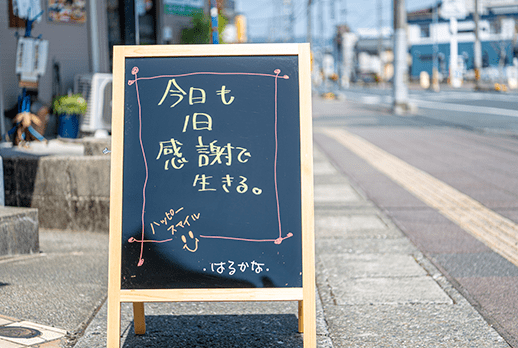 今日も
1日
感謝で
生きる。
ハッピー
スマイル
・はるかな・